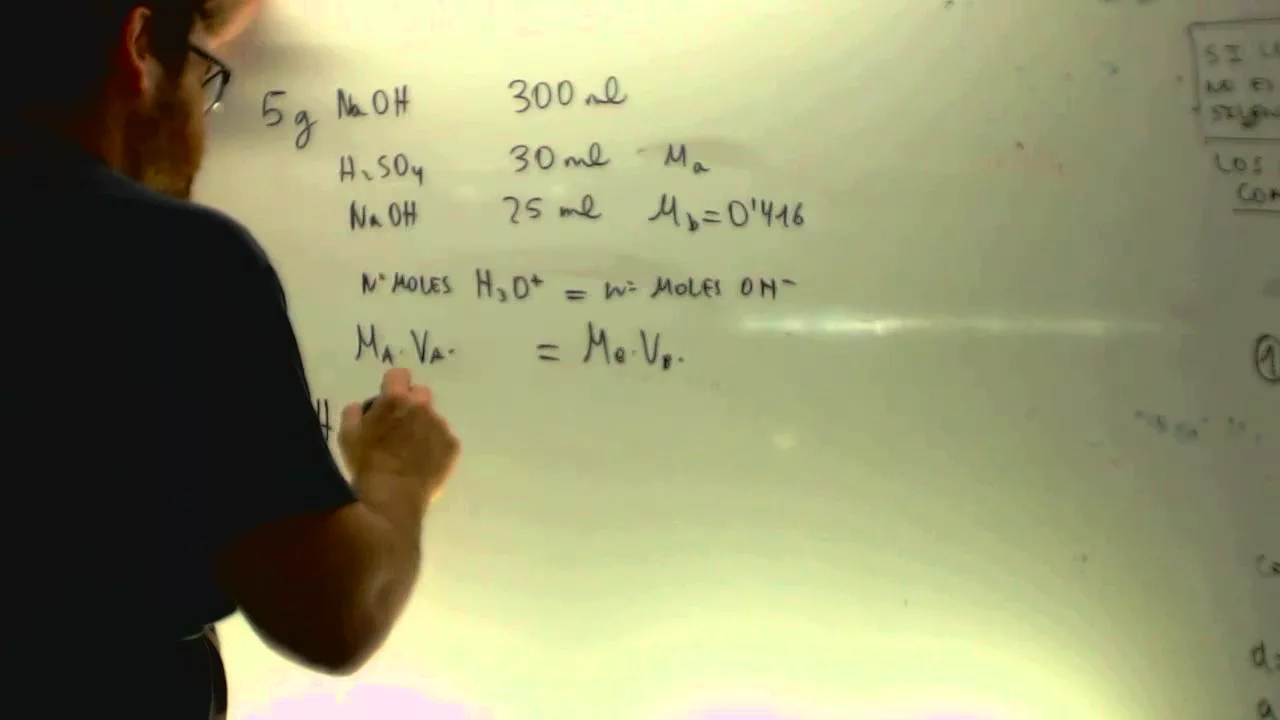 5g NaOH 300 ml
H₂SO₄ 30 ml Ma
NaOH 25 ml Mb=0'416
Nº MOLES H₃O⁺ = nº MOLES OH⁻
MA·VA· = MB·VB·
H
SI
NO ES
LOS
①
d=
a